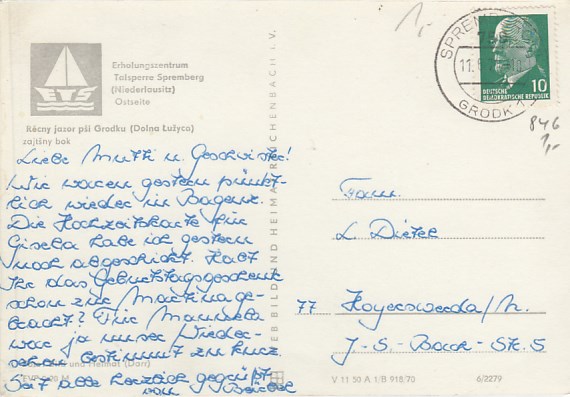 Erholungszentrum
Talsperre Spremberg
(Niederlausitz)
Ostseite
Rěcny jazor pśi Grodku (Dolna Łužyca)
zajtšny bok
Liebe Mutti u. Geschwister!
Wir waren gestern pünkt-
lich wieder in Bagenz.
Die Hochzeitskarte für
Gisela habe ich gestern
noch abgeschickt. Habt
Ihr das Geburtstagsgeschenk
schon zur Martina ge-
bracht? Für Manuela
war ja unser Wieder-
sehen bestimmt zu kurz.
Seid alle herzlich gegrüßt
von Bärbel
und Heimat (Darr)
EVP 0,20 M
VEB BILD UND HEIMAT REICHENBACH i. V.
1,-
SPREMBERG
11.
GRODK 1
DEUTSCHE
DEMOKRATISCHE REPUBLIK
10
846
1,-
Fam.
L. Dietel
77 Hoyerswerda/N.
J.-S.-Bach-Str. 5
V 11 50 A 1/B 918/70
6/2279